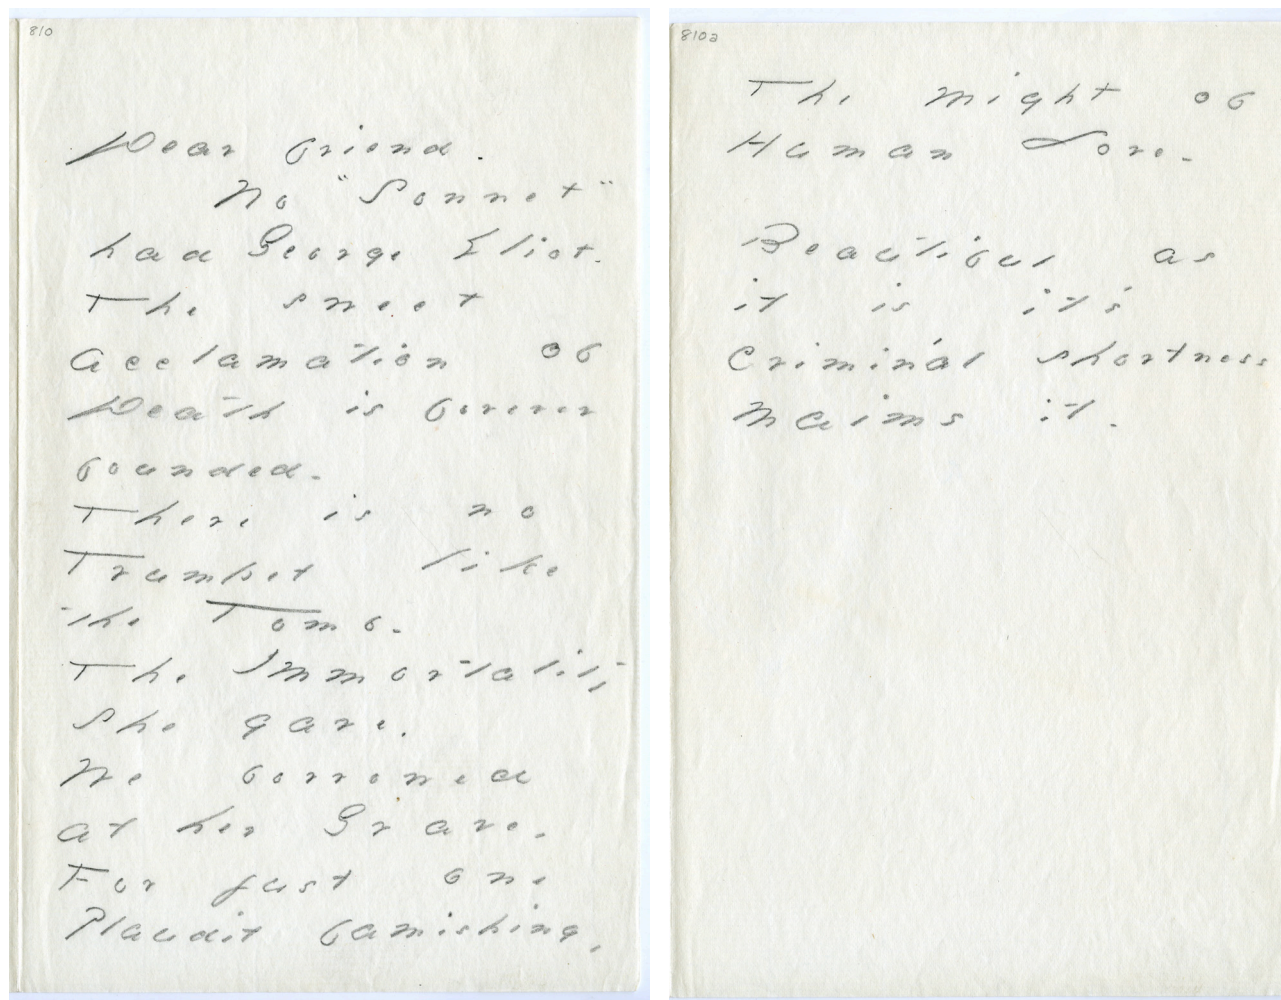 810
Dear friend.
No "Sonnet"
had George Eliot.
The sweet
acclamation of
Death is forever
bounded.
There is no
Trumpet like
the Tomb.
The Immortality
She gave.
We borrowed
at her Grave.
For just one
Plaudit famishing,
810a
The Might of
Human Love.
Beautiful as
it is it's
Criminal shortness
maims it.